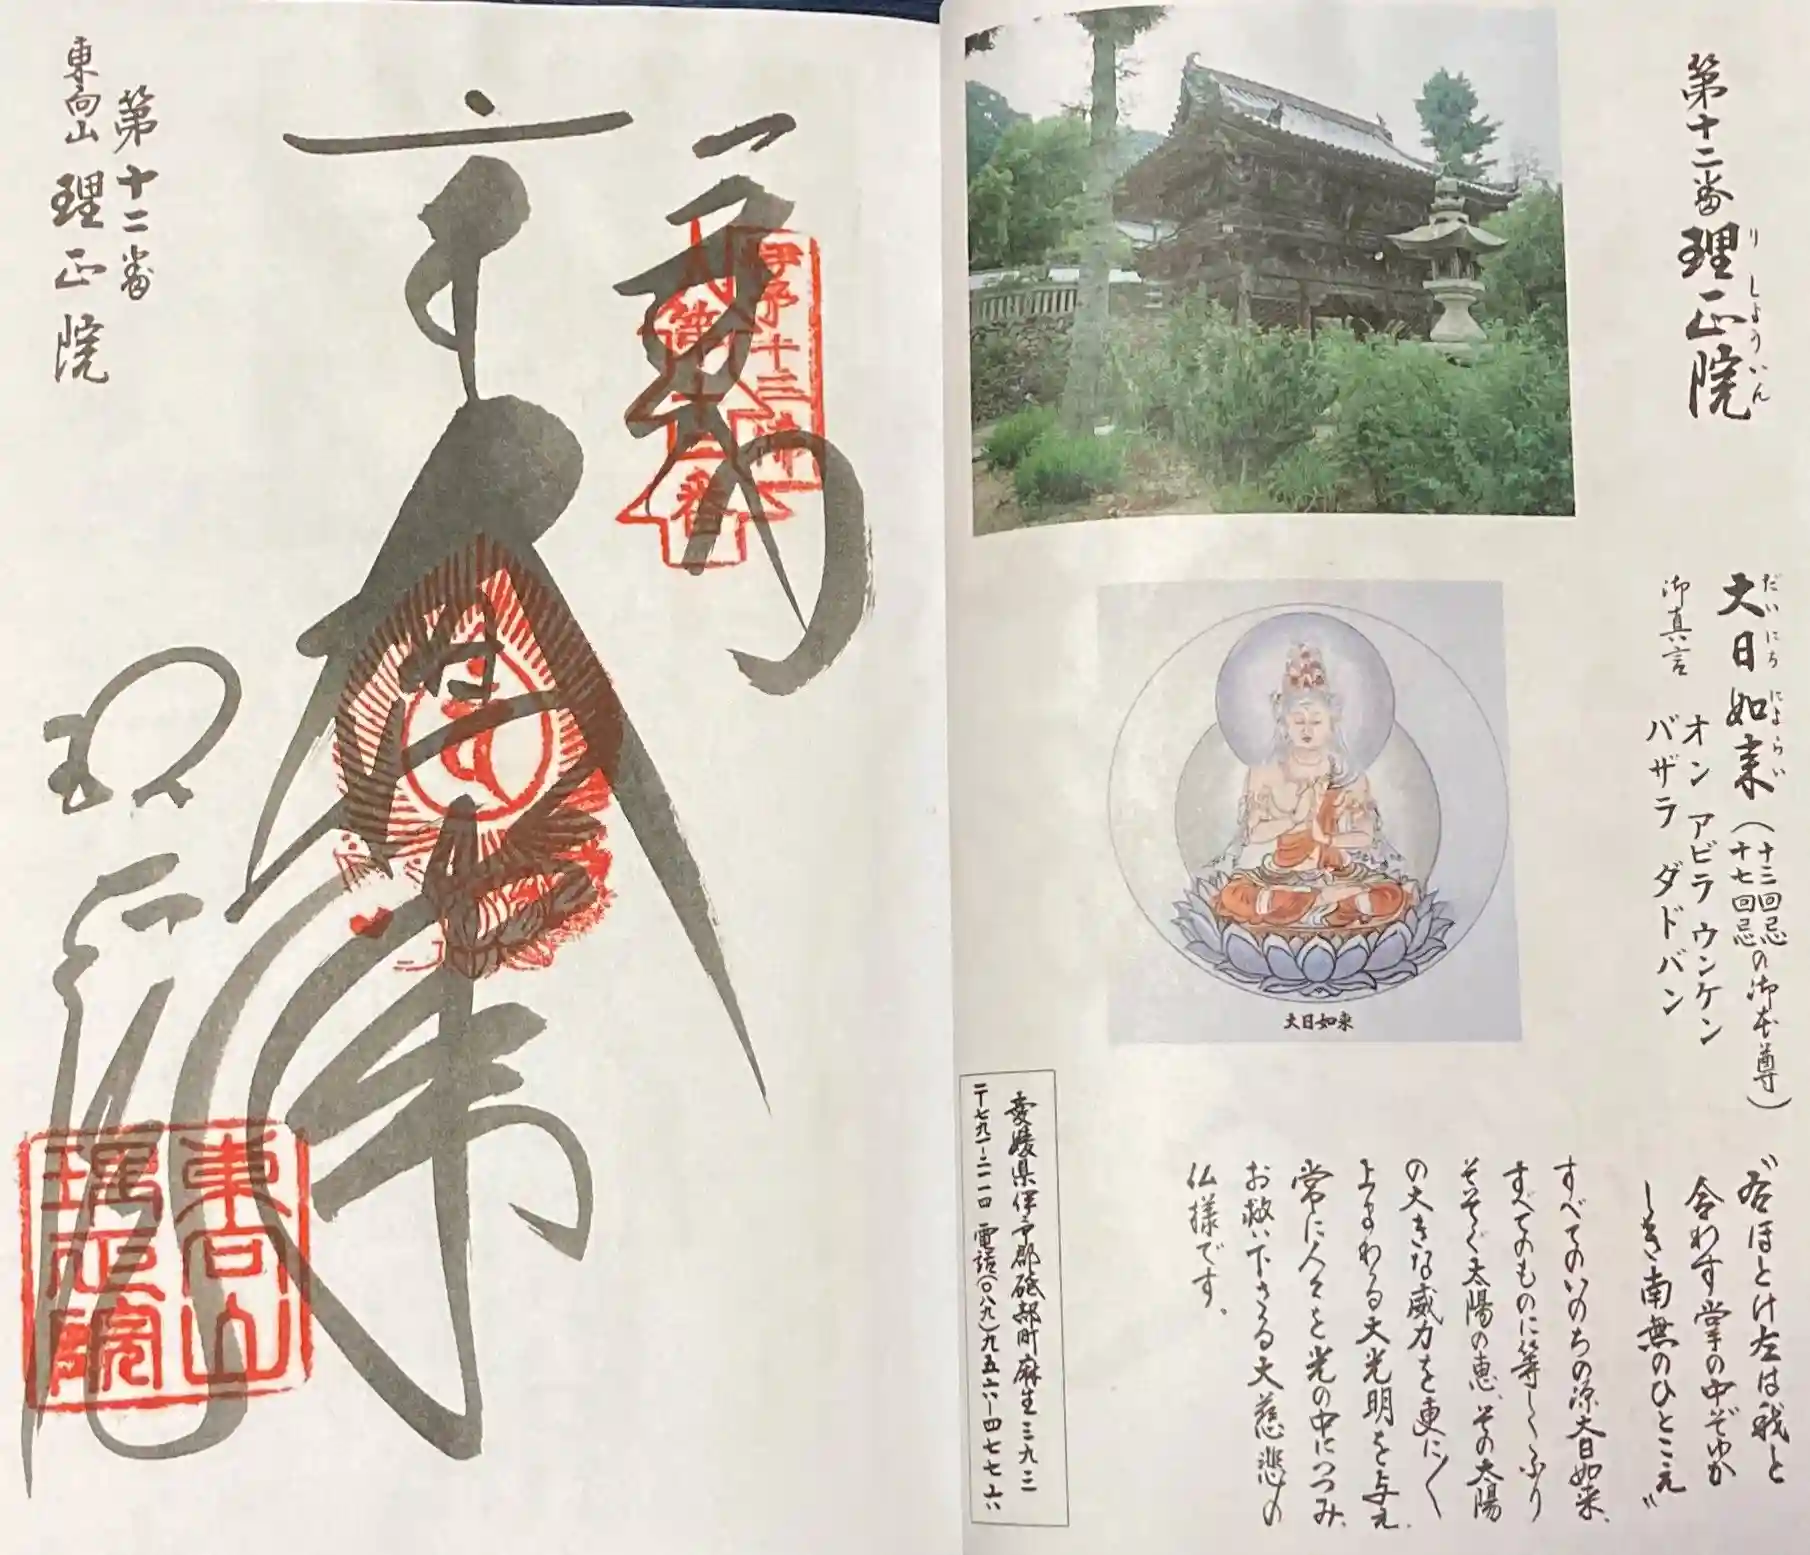 第十二番 理正院
りしょういん
大日如来(十三回忌
十七回忌の御本尊)
だいにちにょらい
御真言
オン アビラ ウンケン
バザラ ダドバン
大日如来
"右ほとけ左は我と
合わす掌の中ぞゆか
しき南無のひとこえ"
すべてのいのちの源大日如来、
すべてのものに等しくふり
そそぐ太陽の恵、その太陽
の大きな威力を更に〱
上まわる大光明を与え、
常に人々と光の中につつみ、
お救い下さる大慈悲の
仏様です。
愛媛県伊予郡砥部町麻生三九三
〒七九一-二一一〇 電話(〇八九)九五六-四七七六
奉
伊予十三佛
第十二番
大日如来
理正院
東向山
理正院
第十二番
東向山 理正院